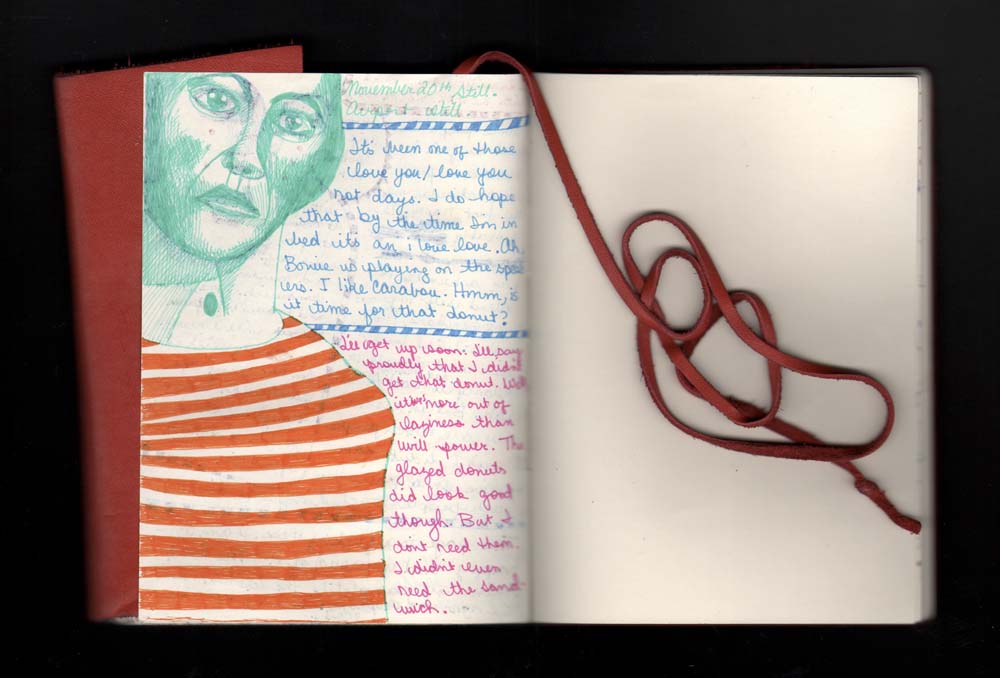 November 20th Still.
Airport still.
It's been one of those
i love you/love you
not days. I do hope
that by the time I'm in
bed it's an i love love. Ah
Bowie is playing on the spea
ers. I like Carabou. Hmm, is
it time for that donut?
I'll get up soon. I'll say
proudly that I didn't
get that donut. Well
it was more out of
laziness than
will power. The
glazed donuts
did look good
though. But I
don't need them.
I didn't even
need the sand-
wich.